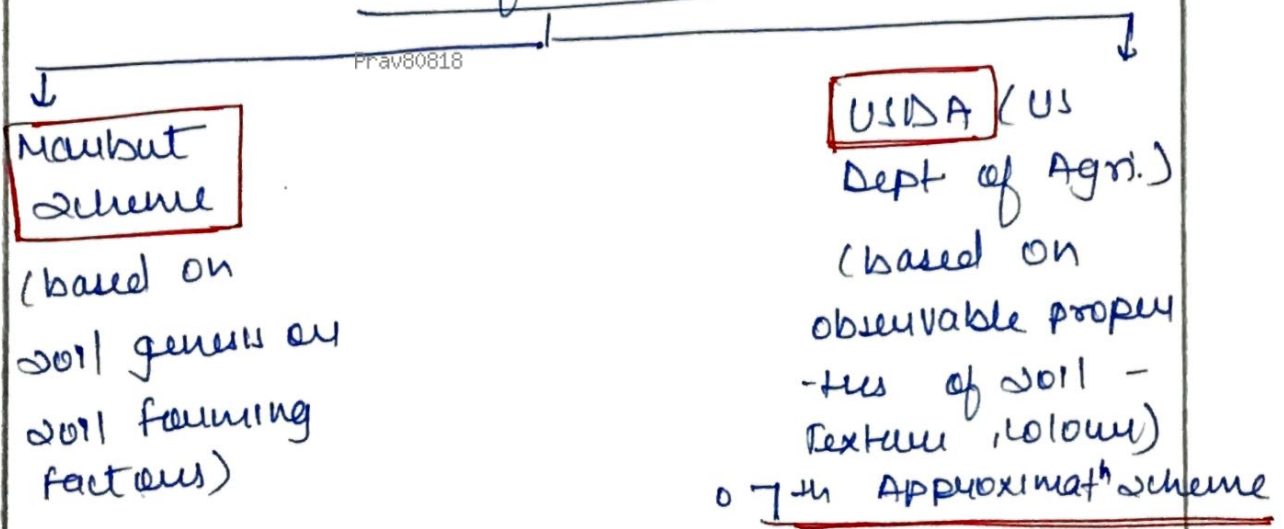 Prav80818
Marbut
Scheme
(based on
soil genesis or
soil forming
factors)
USDA (US
Dept of Agri.)
(based on
observable proper
-ties of soil -
Texture, colour)
7th Approximatn scheme